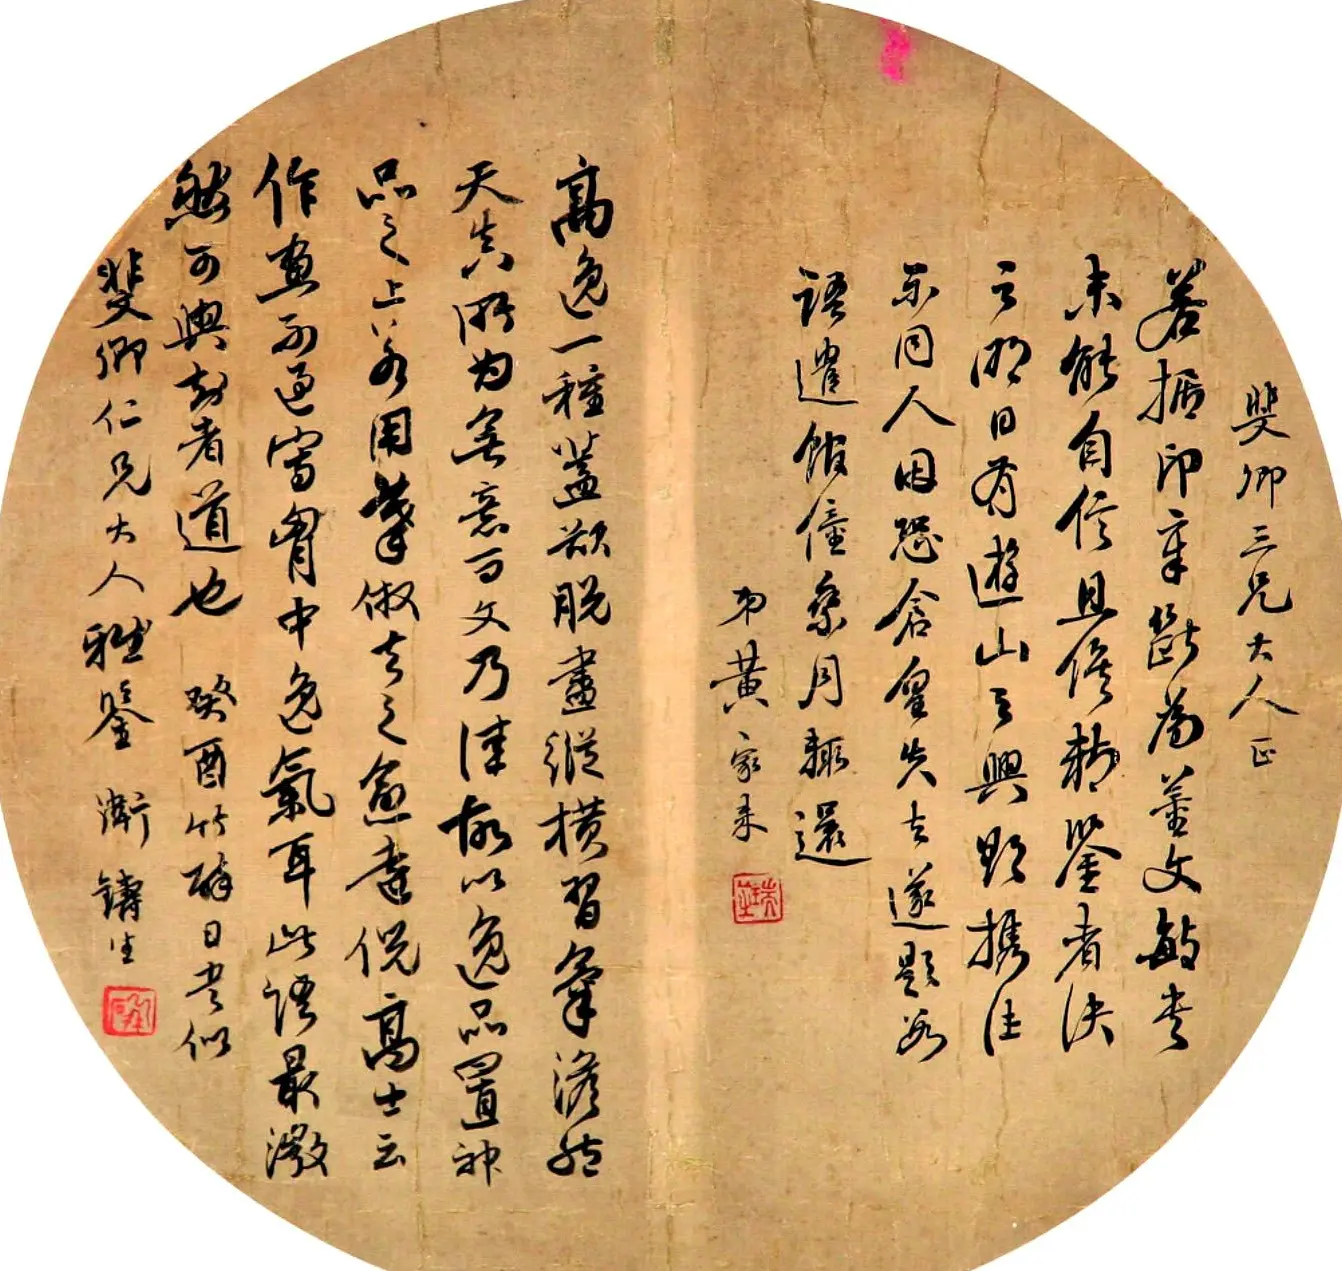 斐卿三兄大人正
若据印章斷為董文敏書
未能自信且俟精鑒者決
之明日有遊山之興欲攜往
示同人因恐倉皇失去遂題數
語遣館僮乘月輒還
弟黃家
高逸一種蓋欲脫盡縱橫習氣澹然
天真所為無意而文乃佳故以逸品置神
品之上若用筆倣去之愈遠倪高士云
作畫不過寫胷中逸氣耳此語最溦
然可與知者道也 癸酉竹醉日書似
斐卿仁兄大人雅鑒 衛鑄生